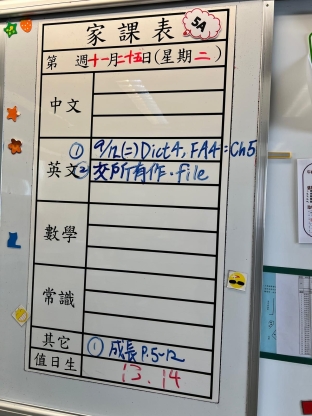 家課表 5A
第 週十一月二十五日(星期二)
中文
① 9/12(二)Dict4, FA4:Ch5
英文② 交所有作.file
數學
常識
其它 ① 成長 P.5-12
值日生 13.14